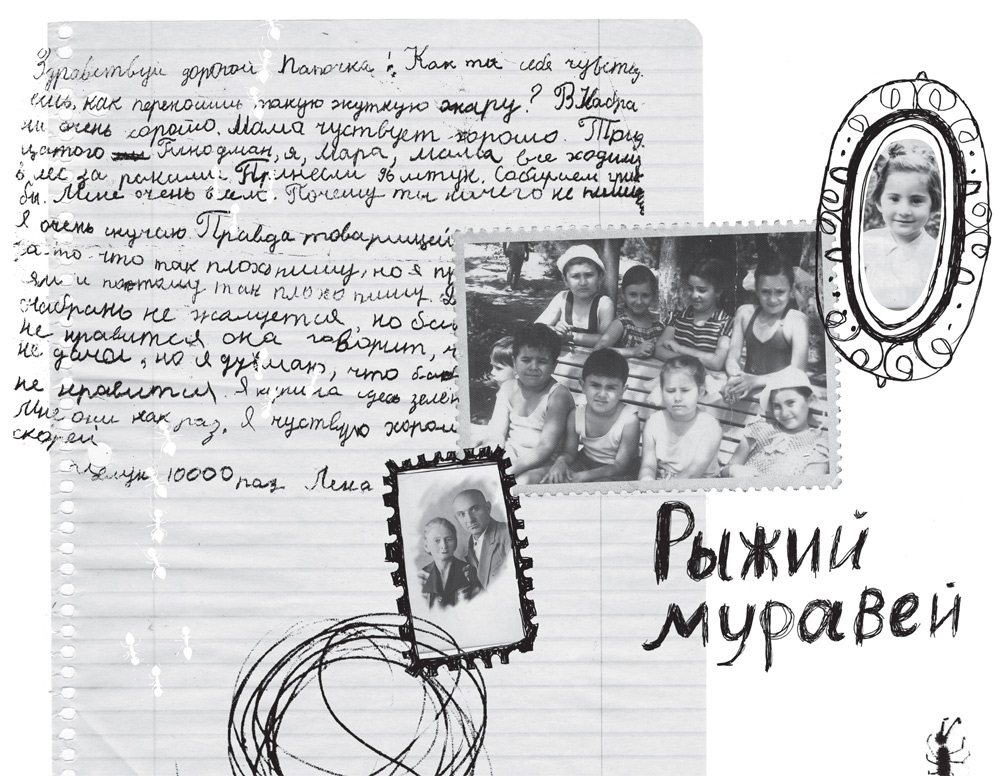 Здравствуй дорогой Папочка! Как ты себя чувству
ешь, как переносишь такую жуткую жару? В Кабра
ни очень хорошо. Мама чуствует хорошо. Трид
цатого Гинодман, я, Мара, мама все ходили
в лес за раками. Принесли 96 штук. Собираем гри
бы. Мне очень весел. Почему ты ничего не пишешь
Я очень скучаю Правда товарищей
за то что так плохо пишу, но я пр
ям и поэтому так плохо пишу.
не жалуется, но
не нравится она говорит, ч
не дачи, но я думаю, что
не нравится. Я купила здесь зелён
мне они как раз. Я чуствую хорош
скорей
Целую 10000 раз Лена
Рыжий
муравей